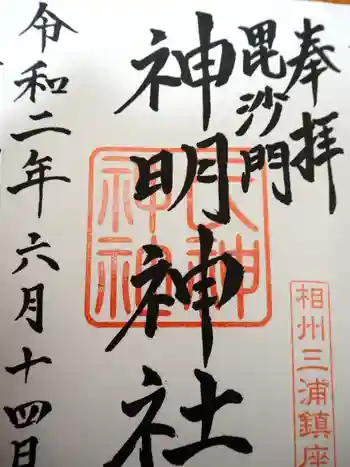 奉拝
毘沙門
神明神社
令和二年六月十四日
相州三浦鎮座